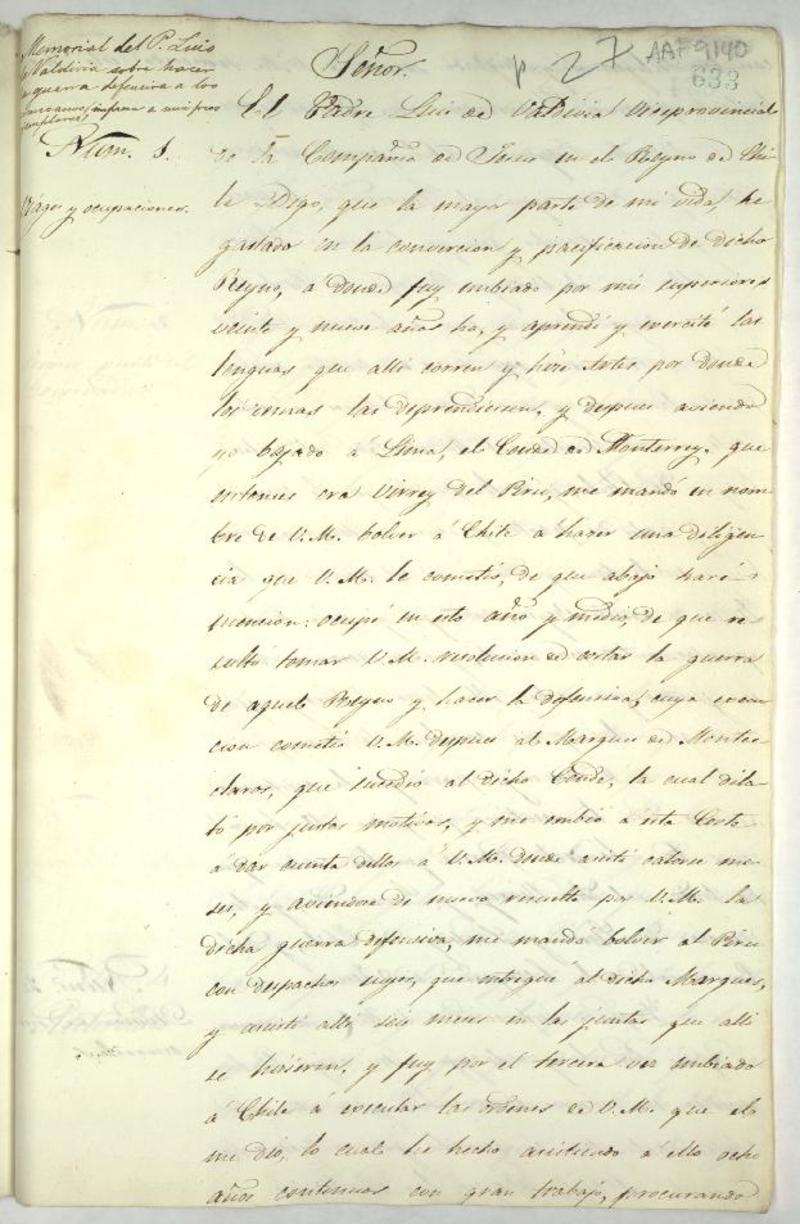 Memorial del P. Luis
de Valdivia sobre hacer
guerra defensiva a los
Araucanos, impresa a
Num. 1.
Viages y ocupaciones.
p 27 AAF9140
633
Señor.
El Padre Luis de Valdivia Viceprovincial
de la Compañia de Jesus en el Reyno de Chi-
le Digo, que la mayor parte de mi vida, he
gastado en la convercion y pacificacion de dicho
Reyno, á donde fuy embiado por mis superiores
veinte y nueve años ha, y aprendi y exercité las
lenguas que alli corren y hize Artes por donde
los demas las deprendiesen, y despues aviendo
yo bajado á Lima, el Conde de Monterrey, que
entonces era Virrey del Piru, me mandó en nom-
bre de V.M. bolver á Chile á hazer una diligen-
cia que V.M. le cometió, de que abajo haré
mencion: ocupé en esto año y medio, de que re-
sultó tomar V.M. resolucion de cortar la guerra
de aquel Reyno y hacer la defensiva, cuya execu-
cion cometió V.M. despues al Marques de Montes-
claros, que sucedio al dicho Conde, la cual dila-
tó por justos motivos, y me embió a esta Corte
á dar cuenta dellos á V.M. donde asisti catorse me-
ses, y aviendose de nuevo resuelto por V.M. la
dicha guerra defensiva, me mandó bolver al Piru
con despachos suyos, que entregué al dicho Marques,
y asisti alli seis meses en las juntas que alli
se hisieron, y fuy por el tercera ves embiado
á Chile á executar las órdenes de V.M. que el
me dió, lo cual he hecho asistiendo á ello ocho
años continuos con gran trabajo, procurando